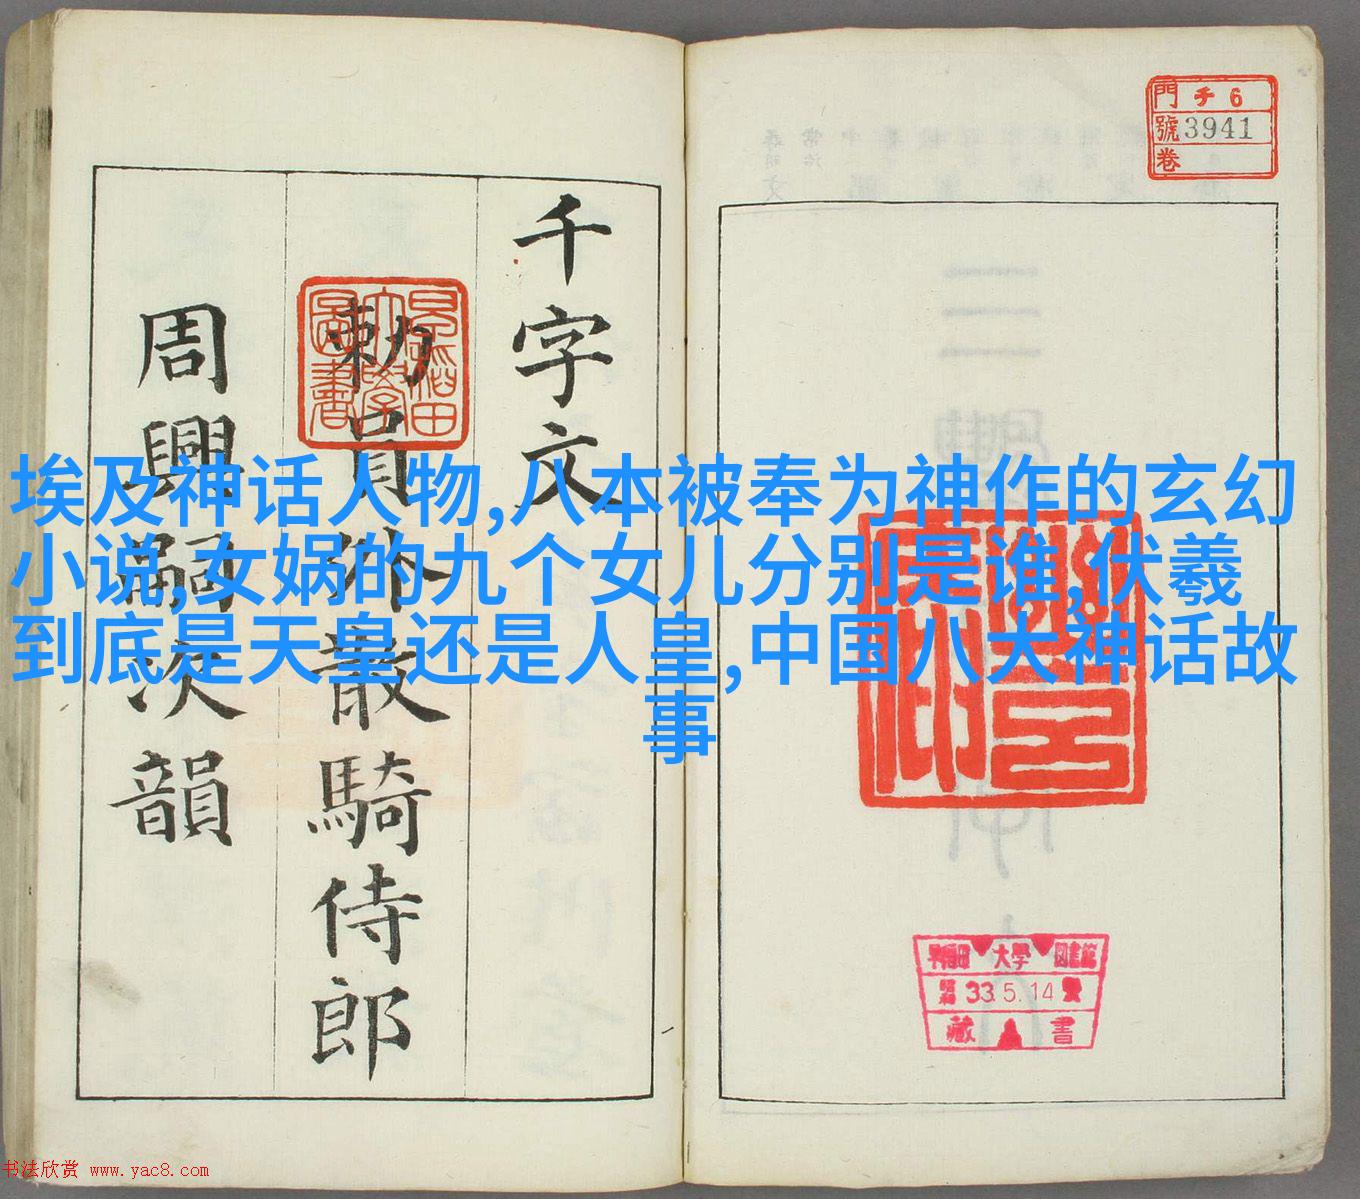 埃及神话人物,八本被奉为神作的玄幻
小说,女娲的九个女儿分别是谁,伏羲
到底是天皇还是人皇,中国八大神话故
事
門 チ 6
號 3941
卷
千字文
勅員外散騎侍郎
周興嗣次韻
早稲田大學圖書
早稲田 大學 図書館
昭和 33.5.14
藏 書
书法欣赏 www.yac8.com